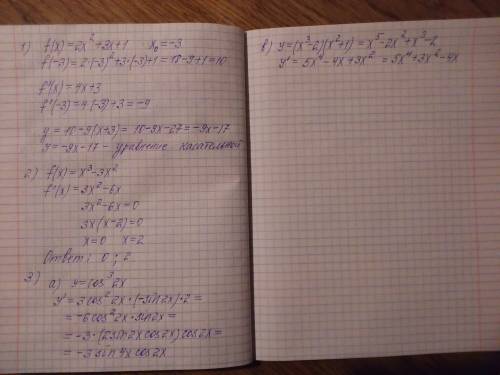 1) f(x)=2x²+3x+1 x₀=-3
f(-3)=2·(-3)²+3·(-3)+1=18-9+1=10
f'(x)=4x+3
f'(-3)=4·(-3)+3=-9
y=10-9(x+3)=10-9x-27=-9x-17
y=-9x-17 - уравнение касательной
2) f(x)=x³-3x²
f'(x)=3x²-6x
3x²-6x=0
3x(x-2)=0
x=0 x=2
Ответ: 0 ; 2
3) а) y=cos³2x
y'=3cos²2x·(-sin2x)·2=
=-6cos²2x·sin2x=
=-3·(2sin2xcos2x)cos2x=
=-3sin4xcos2x
в) y=(x³-2)(x²+1)=x⁵-2x²+x³-2
y'=5x⁴-4x+3x²=5x⁴+3x²-4x